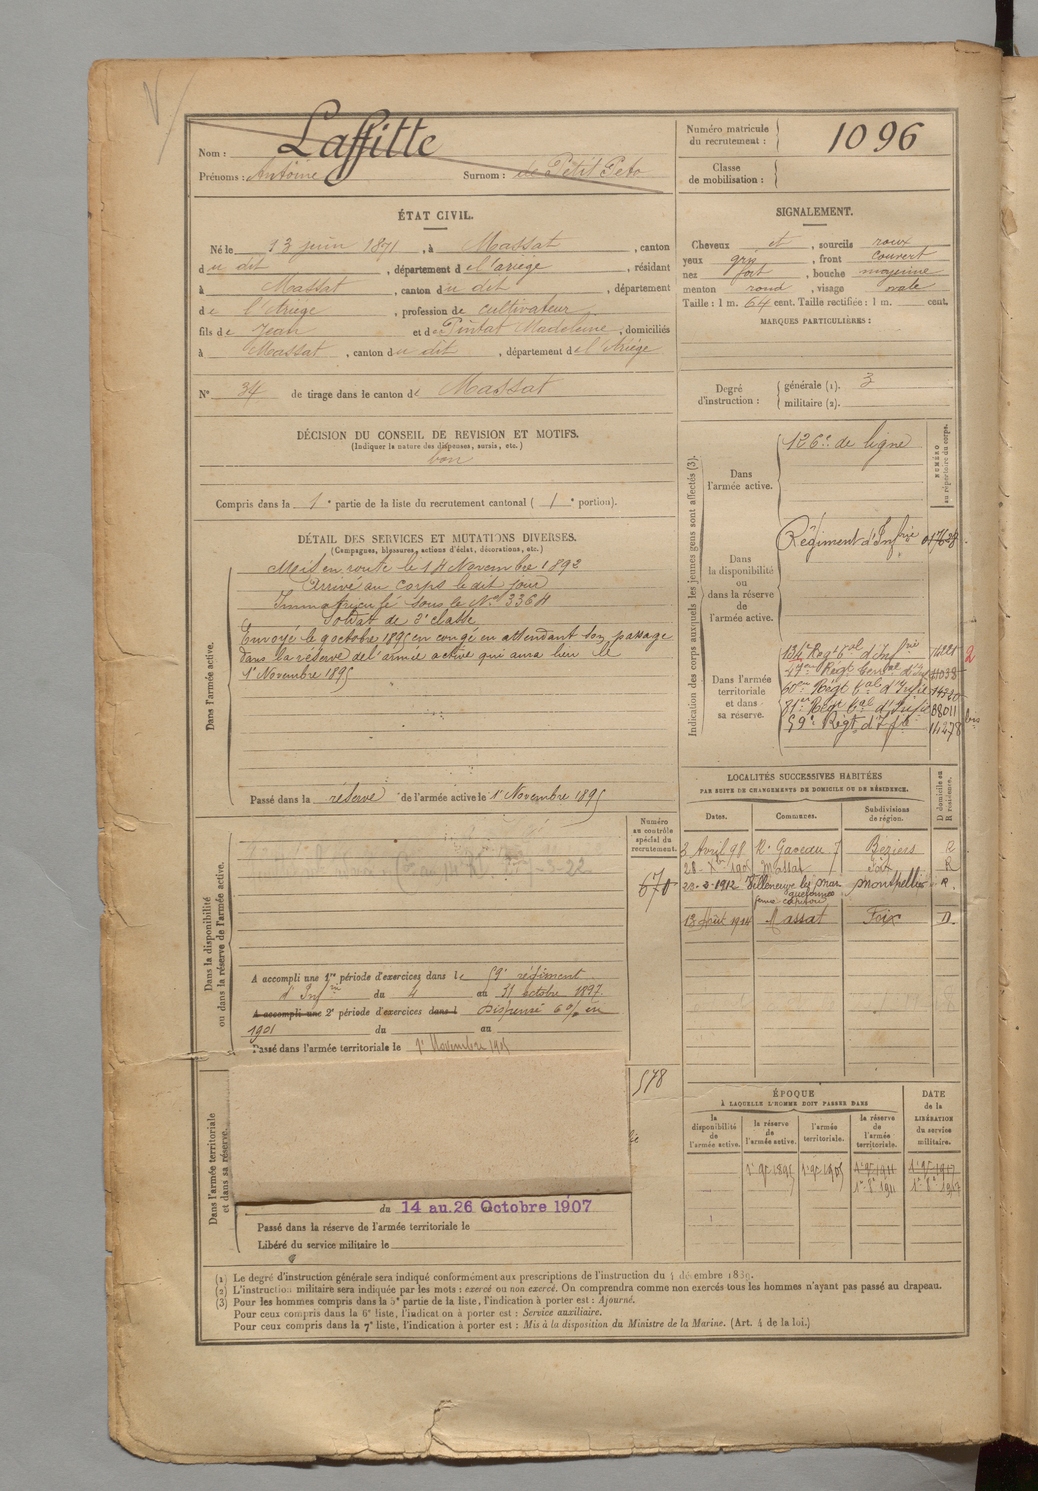 Nom : Laffitte
Prénoms : Antoine Surnom : de Petit Peto
Numéro matricule du recrutement : 1096
Classe de mobilisation :
ÉTAT CIVIL.
Né le 13 juin 1871, à Massat, canton
du dit, département de l'ariège, résidant
à Massat, canton du dit, département
de l'Ariège, profession de cultivateur
fils de Jean et de Pintat Madeleine, domiciliés
à Massat, canton du dit, département de l'Ariège
N° 34 de tirage dans le canton de Massat
SIGNALEMENT.
Cheveux et, sourcils roux
yeux gris, front couvert
nez fort, bouche moyenne
menton rond, visage ovale
Taille : 1 m. 64 cent. Taille rectifiée : 1 m. cent.
MARQUES PARTICULIÈRES :
Degré d'instruction : générale (1). 3
militaire (2).
DÉCISION DU CONSEIL DE REVISION ET MOTIFS.
(Indiquer la nature des dispenses, sursis, etc.)
bon
Compris dans la 1e partie de la liste du recrutement cantonal (1e portion).
DÉTAIL DES SERVICES ET MUTATIONS DIVERSES.
(Campagnes, blessures, actions d'éclat, décorations, etc.)
Dans l'armée active.
Mis en route le 14 Novembre 1892
Arrivé au corps le dit jour
Immatriculé sous le N° 3364
Soldat de 2e classe
Envoyé le 9 octobre 1895 en congé en attendant son passage
dans la réserve de l'armée active qui aura lieu le
1er Novembre 1895
Passé dans la réserve de l'armée active le 1er Novembre 1895
Indication des corps auxquels les jeunes gens sont affectés (3).
NUMÉRO au répertoire du corps.
Dans l'armée active.
126e de ligne
Dans la disponibilité ou dans la réserve de l'armée active.
Régiment d'Infrie
Dans l'armée territoriale et dans sa réserve.
134e Regt tal d'Infrie
60e Régt tal d'Infie
81e Régt tal d'Infie
59e Régt d'Infie
2
bis
LOCALITÉS SUCCESSIVES HABITÉES
PAR SUITE DE CHANGEMENTS DE DOMICILE OU DE RÉSIDENCE.
Dates. Communes. Subdivisions de région. D domicile ou R résidence.
Béziers R
Massat Foix R
20-3-1912 Villeneuve les Maguelonnes Montpellier R.
13 Août 1914 Massat Foix D.
Dans la disponibilité ou dans la réserve de l'armée active.
Numéro au contrôle spécial du recrutement.
670
A accompli une 1re période d'exercices dans le 59e régiment
d'Infrie du 4 au 31 octobre 1897.
A accompli une 2e période d'exercices dans l Dispensé 6% en
1901 du au
Passé dans l'armée territoriale le 1er Novembre 1905
Dans l'armée territoriale et dans sa réserve.
578
du 14 au 26 Octobre 1907
Passé dans la réserve de l'armée territoriale le
Libéré du service militaire le
ÉPOQUE
À LAQUELLE L'HOMME DOIT PASSER DANS
DATE de la LIBÉRATION du service militaire.
la disponibilité de l'armée active. la réserve de l'armée active. l'armée territoriale. la réserve de l'armée territoriale.
1er 9bre 1895 1er 9bre 1905 1er 9bre 1911 1er 9bre 1917
(1) Le degré d'instruction générale sera indiqué conformément aux prescriptions de l'instruction du 4 décembre 1889.
(2) L'instruction militaire sera indiquée par les mots : exercé ou non exercé. On comprendra comme non exercés tous les hommes n'ayant pas passé au drapeau.
(3) Pour les hommes compris dans la 5e partie de la liste, l'indication à porter est : Ajourné.
Pour ceux compris dans la 6e liste, l'indication à porter est : Service auxiliaire.
Pour ceux compris dans la 7e liste, l'indication à porter est : Mis à la disposition du Ministre de la Marine. (Art. 4 de la loi.)